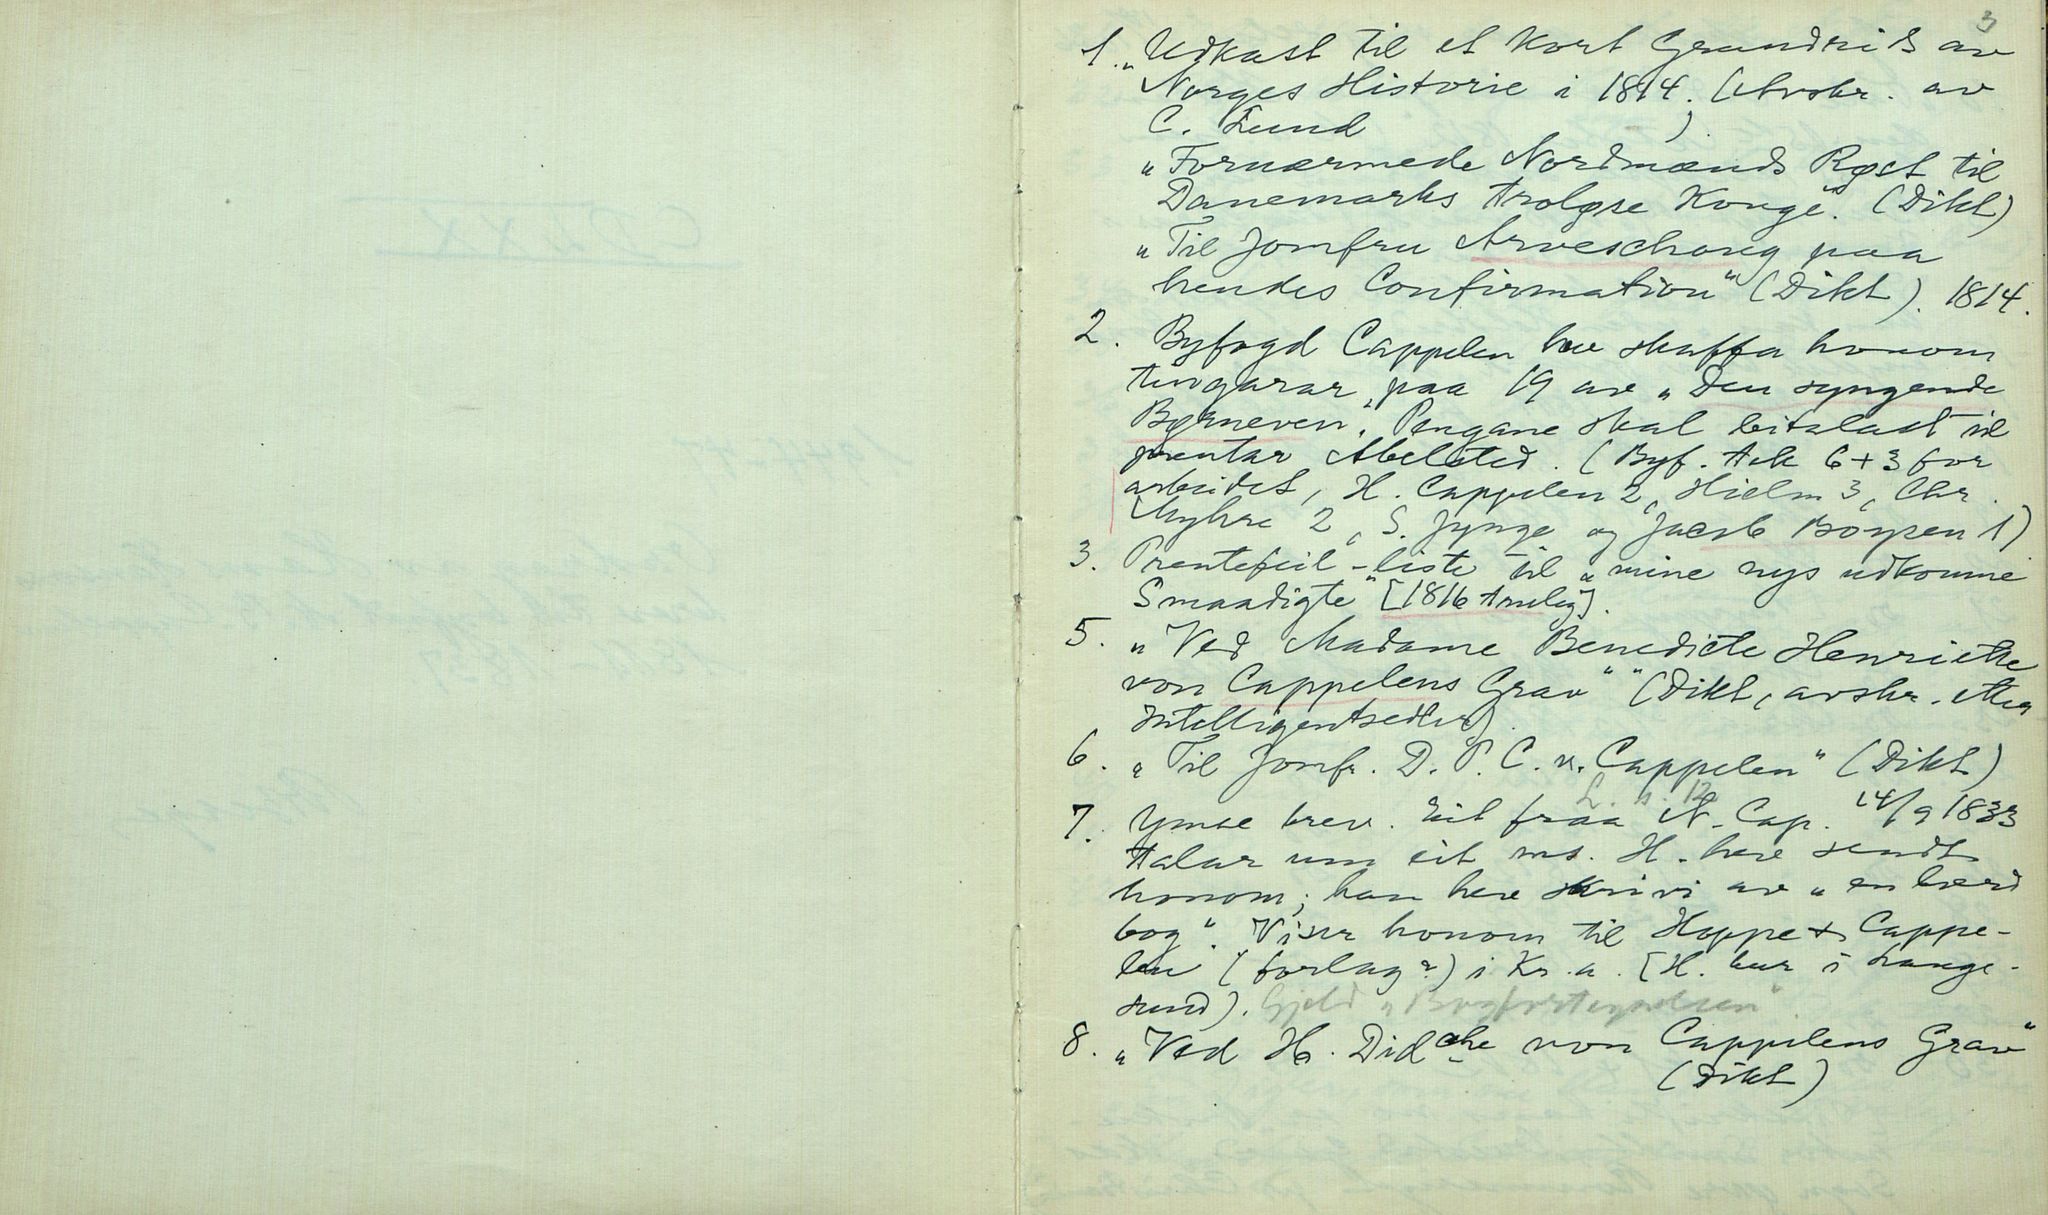 3
1. „Udkast til et kort Grundrids av
Norges Historie i 1814. (Avskr. av
C. Lund )
„Fornærmede Nordmænds Røst til
Danemarks troløse Konge". (Dikt)
„Til Jomfru Arveschoug paa
hendes Confirmation" (Dikt). 1814.
2. Byfogd Cappelen hev skaffa honom
tingarar paa 19 av „Den syngende
Børneven". Pengane skal betalast til
prentar Abelsted. (Byf. tek 6+3 for
arbeidet, H. Cappelen 2, Hielm 3, Chr.
Myhre 2, S. Jynge og Jacob Boysen 1)
3. Prentefeil-liste til „mine nys udkomne
Smaadigte" [1816 truleg].
5. „Ved Madame Benedicte Henriette
von Cappelens Grav" (Dikt, avskr. etter
Intelligentsedler)
6. „Til Jomfr. D. P. C. v. Cappelen" (Dikt)
L. h. 12
7. Ymse brev. Eit fraa N. Cap. 14/9 1833
talar um eit ms. H. heve sendt
honom; han heve skrivi av „en lærd
bog". Viser honom til Hoppe & Cappe-
len (forlag?) i Kr.a. [H. bur i Lange-
sund). Gjeld „Bogfortegnelsen".
8. „Ved H. Did che von Cappelens Grav"
(Dikt)